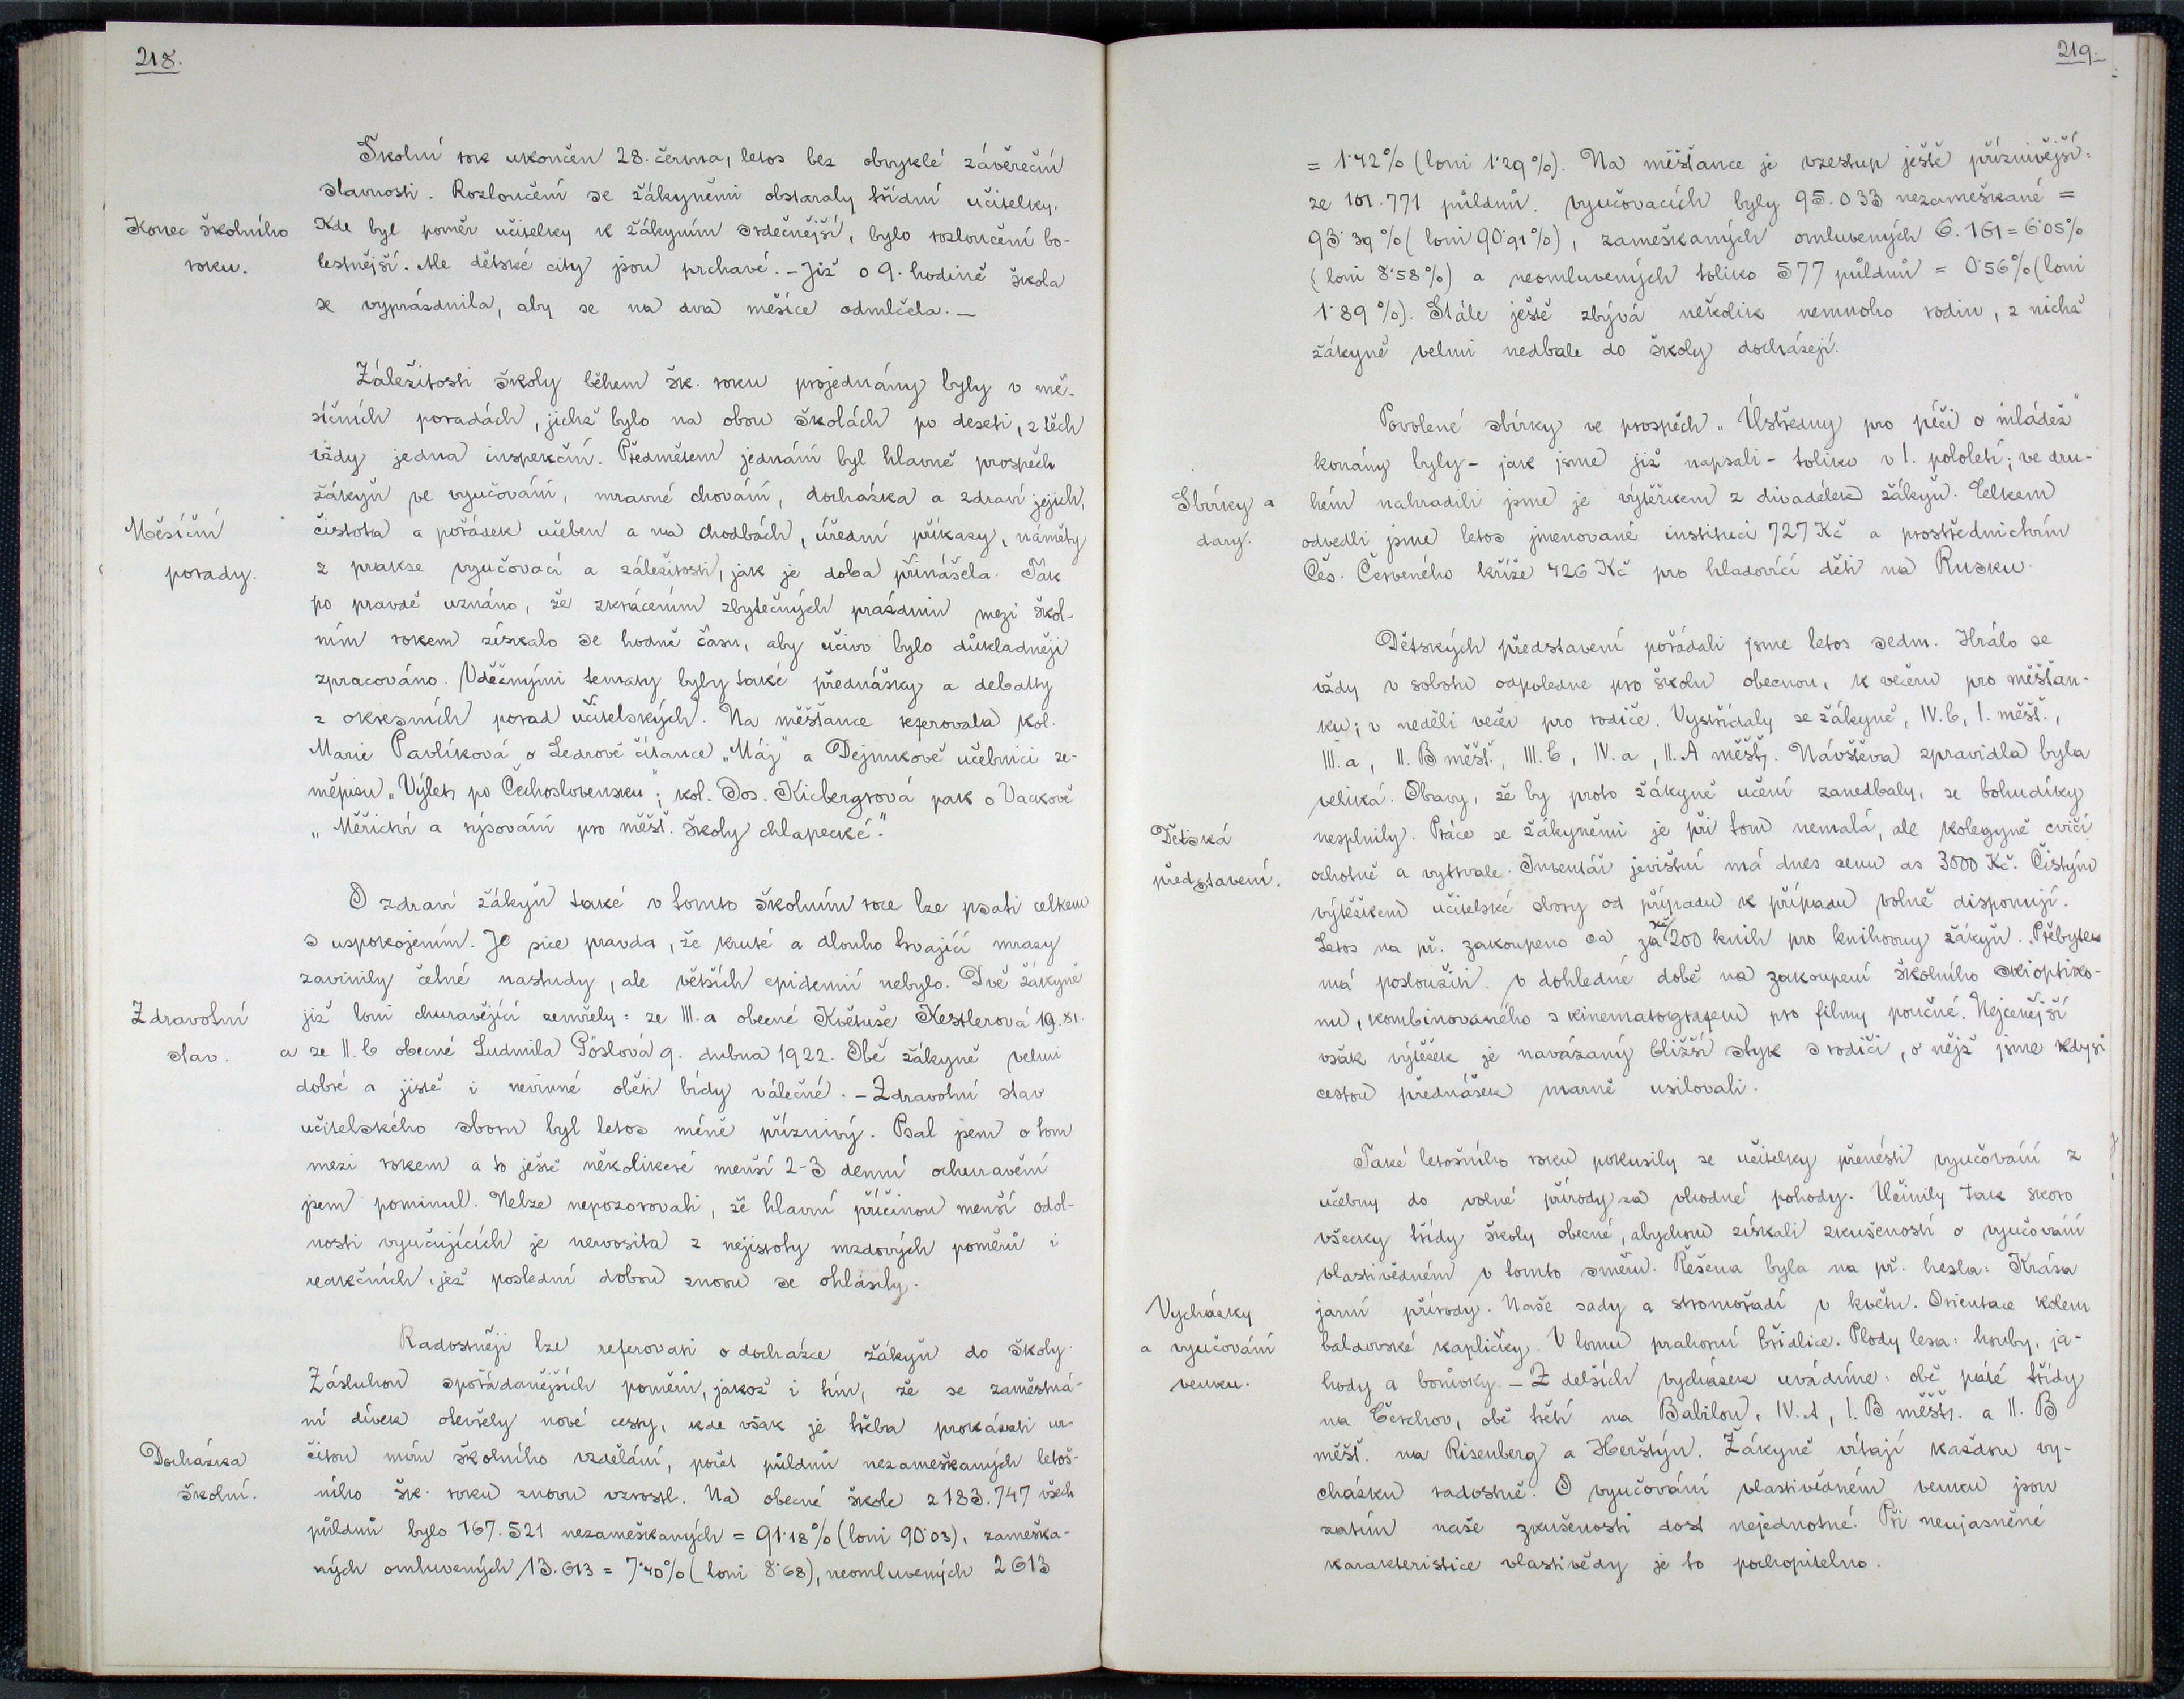 218.
Školní rok ukončen 28. června, letos bez obvyklé závěreční
slavnosti. Rozloučení se žákyněmi obstaraly třídní učitelky.
Konec školního
roku.
Kde byl poměr učitelky k žákyním srdečnější, bylo rozloučení bo-
lestnější. Ale dětské city jsou prchavé. – Již o 9. hodině škola
se vyprázdnila, aby se na dva měsíce odmlčela. –
Záležitosti školy během šk. roku projednány byly v mě-
síčních poradách, jichž bylo na obou školách po deseti, z těch
vždy jedna inspekční. Předmětem jednání byl hlavně prospěch
žákyň ve vyučování, mravné chování, docházka a zdraví jejich,
Měsíční
porady.
čistota a pořádek učeben a na chodbách, úřední příkazy, náměty
z prakse vyučovací a záležitosti, jak je doba přinášela. Tak
po pravdě uznáno, že zkrácením zbytečných prázdnin mezi škol-
ním rokem získalo se hodně času, aby učivo bylo důkladněji
zpracováno. Vděčnými tematy byly také přednášky a debatty
z okresních porad učitelských. Na měšťance referovala kol.
Marie Pavlíková o Ledrově čítance „Máj" a Dejmkově učebnici ze-
měpisu „Výlet po Čechoslovensku"; kol. Jos. Kicbergrová pak o Vackově
„Měřictví a rýsování pro měšť. školy chlapecké."
O zdraví žákyň také v tomto školním roce lze psáti celkem
s uspokojením. Je sice pravda, že kruté a dlouho trvající mrazy
zavinily četné nastudy, ale větších epidemií nebylo. Dvě žákyně
Zdravotní
stav.
již loni churavějící zemřely: ze III.a obecné Květuše Kestlerová 19.XI.
a ze II.b obecné Ludmila Pöslová 9. dubna 1922. Obě žákyně velmi
dobré a jistě i nevinné oběti bídy válečné. – Zdravotní stav
učitelského sboru byl letos méně příznivý. Psal jsem o tom
mezi rokem a to ještě několikeré menší 2-3 denní ochuravění
jsem pominul. Nelze nepozorovati, že hlavní příčinou menší odol-
nosti vyučujících je nervosita z nejistoty mzdových poměrů i
reakčních, jež poslední dobou znovu se ohlásily.
Radostněji lze referovati o docházce žákyň do školy.
Zásluhou spořádanějších poměrů, jakož i tím, že se zaměstná-
ní dívek otevřely nové cesty, kde však je třeba prokázati ur-
Docházka
školní.
čitou míru školního vzdělání, počet půldnů nezameškaných letoš-
ního šk. roku znovu vzrostl. Na obecné škole z 183.747 všech
půldnů bylo 167.521 nezameškaných = 91·18% (loni 90·03), zameška-
ných omluvených 13.613 = 7·40% (loni 8·68), neomluvených 2613
219.
= 1·42% (loni 1·29%). Na měšťance je vzestup ještě příznivější:
ze 101.771 půldnů vyučovacích byly 95.033 nezameškané =
93·39% (loni 90·91%), zameškaných omluvených 6.161 = 6·05%
(loni 8·58%) a neomluvených toliko 577 půldnů = 0·56% (loni
1·89%). Stále ještě zbývá několik nemnoho rodin, z nichž
žákyně velmi nedbale do školy docházejí.
Povolené sbírky ve prospěch „Ústředny pro péči o mládež"
konány byly – jak jsme již napsali – toliko v I. pololetí; ve dru-
Sbírky a
dary.
hém nahradili jsme je výtěžkem z divadélek žákyň. Celkem
odvedli jsme letos jmenované instituci 727 Kč a prostřednictvím
Čes. Červeného kříže 426 Kč pro hladovící děti na Rusku.
Dětských představení pořádali jsme letos sedm. Hrálo se
vždy v sobotu odpoledne pro školu obecnou, k večeru pro měšťan-
ku; v neděli večer pro rodiče. Vystřídaly se žákyně, IV.b, I. měšť.,
III.a, II.B měšť., III.b, IV.a, II.A měšť. Návštěva zpravidla byla
veliká. Obavy, že by proto žákyně učení zanedbaly, se bohudíky
Dětská
představení.
nesplnily. Práce se žákyněmi je při tom nemalá, ale kolegyně cvičí
ochotně a vytrvale. Inventář jevištní má dnes cenu as 3000 Kč. Čistým
výtěžkem učitelské sbory od případu k případu volně disponují.
Letos na př. zakoupeno ca za Kč 200 knih pro knihovny žákyň. Přebytek
má posloužiti v dohledné době na zakoupení školního skioptiko-
nu, kombinovaného s kinematografem pro filmy poučné. Nejcenější
však výtěžek je navázaný bližší styk s rodiči, o nějž jsme kdysi
cestou přednášek marně usilovali.
Také letošního roku pokusily se učitelky přenésti vyučování z
učebny do volné přírody za vhodné pohody. Učinily tak skoro
všecky třídy školy obecné, abychom získali zkušeností o vyučování
vlastivědném v tomto směru. Řešena byla na př. hesla: Krása
Vycházky
a vyučování
venku.
jarní přírody. Naše sady a stromořadí v květu. Orientace kolem
baldovské kapličky. V lomu prahorní břidlice. Plody lesa: houby, ja-
hody a borůvky. – Z delších vycházek uvádíme: obě páté třídy
na Čerchov, obě třetí na Babilon, IV.A, I.B měšť. a II.B
měšť. na Risenberg a Herštýn. Žákyně vítají každou vy-
cházku radostně. O vyučování vlastivědném venku jsou
zatím naše zkušenosti dost nejednotné. Při neujasněné
karakteristice vlastivědy je to pochopitelno.